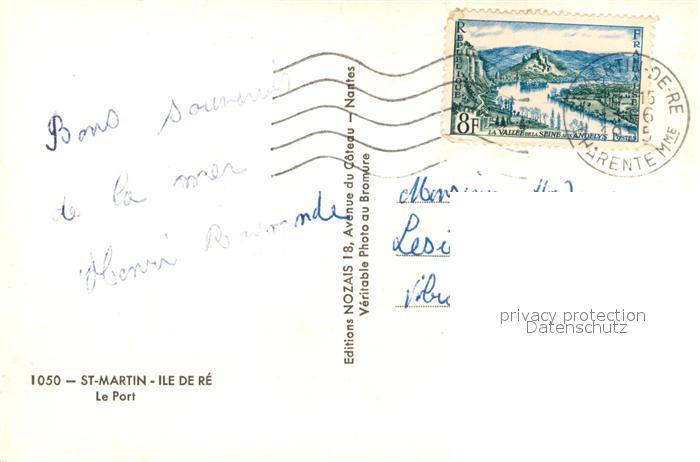 Bons souvenirs
de la mer
Henri Raymonde
1050 — ST-MARTIN - ILE DE RÉ
Le Port
Editions NOZAIS 18, Avenue du Côteau — Nantes
Véritable Photo au Bromure
REPUBLIQUE FRANÇAISE
8F
LA VALLÉE DE LA SEINE AUX ANDELYS POSTES
MARTIN-DE-RE
15
6
CHARENTE Mme
Monsieur
privacy protection
Datenschutz